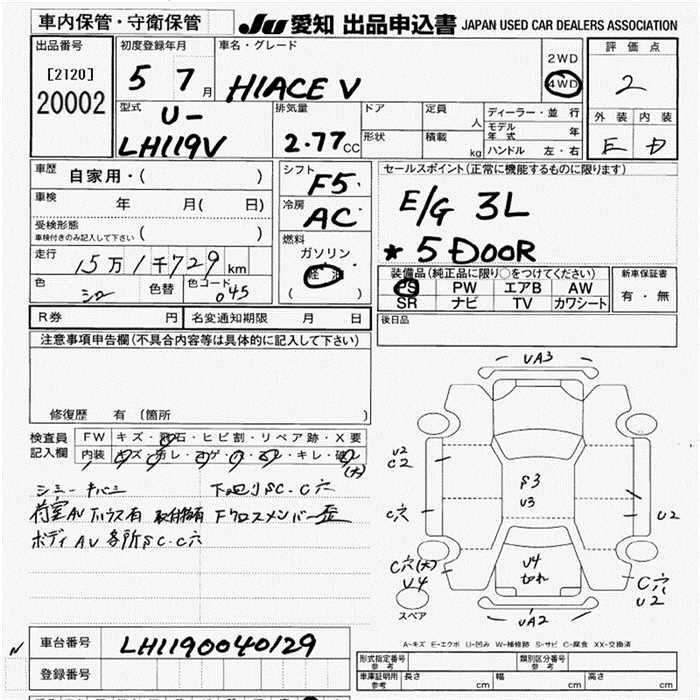 車内保管・守衛保管
JU 愛知 出品申込書 JAPAN USED CAR DEALERS ASSOCIATION
出品番号
[2120]
20002
初度登録年月
5 7 月
車名・グレード
HIACE V
2WD
4WD
評価点
2
外装 内装
E D
型式
U-
LH119V
排気量
2.77 CC
ドア
形状
定員 人
積載 kg
ディーラー・並行
モデル年式 年
ハンドル 左・右
車歴
自家用・( )
車検 年 月( 日)
受検形態
車検付きのみ記入して下さい ( )
走行
15万1千729 km
色
シロ
色替
色コード
045
シフト
F5
冷房
AC
燃料
ガソリン
軽油
( )
セールスポイント(正常に機能するものに限ります)
E/G 3L
* 5 DOOR
装備品(純正品に限り○をつけてください)
PS PW エアB AW
SR ナビ TV カワシート
新車保証書
有・無
R券 円
名変通知期限 月 日
後日品
注意事項申告欄(不具合内容等は具体的に記入して下さい)
修復歴 有 (箇所 )
検査員
記入欄
FW キズ・飛石・ヒビ割・リペア跡・X要
内装 キズ・汚レ・コゲ・穴・スレ・キレ・破レ
(大)
下回りSC.C穴
ボディAV 各所SC.C穴
UA3
U2
C2
C穴
C穴(大)
U4
スペア
S3
U3
U4
切れ
U2
C穴
U2
UA2
A-キズ E-エクボ U-凹み W-補修跡 S-サビ C-腐食 XX-交換済
車台番号
LH1190040129
登録番号
形式指定番号
参考
類別区分番号
参考
車庫証明用
参考
長さ cm
幅 cm
高さ cm